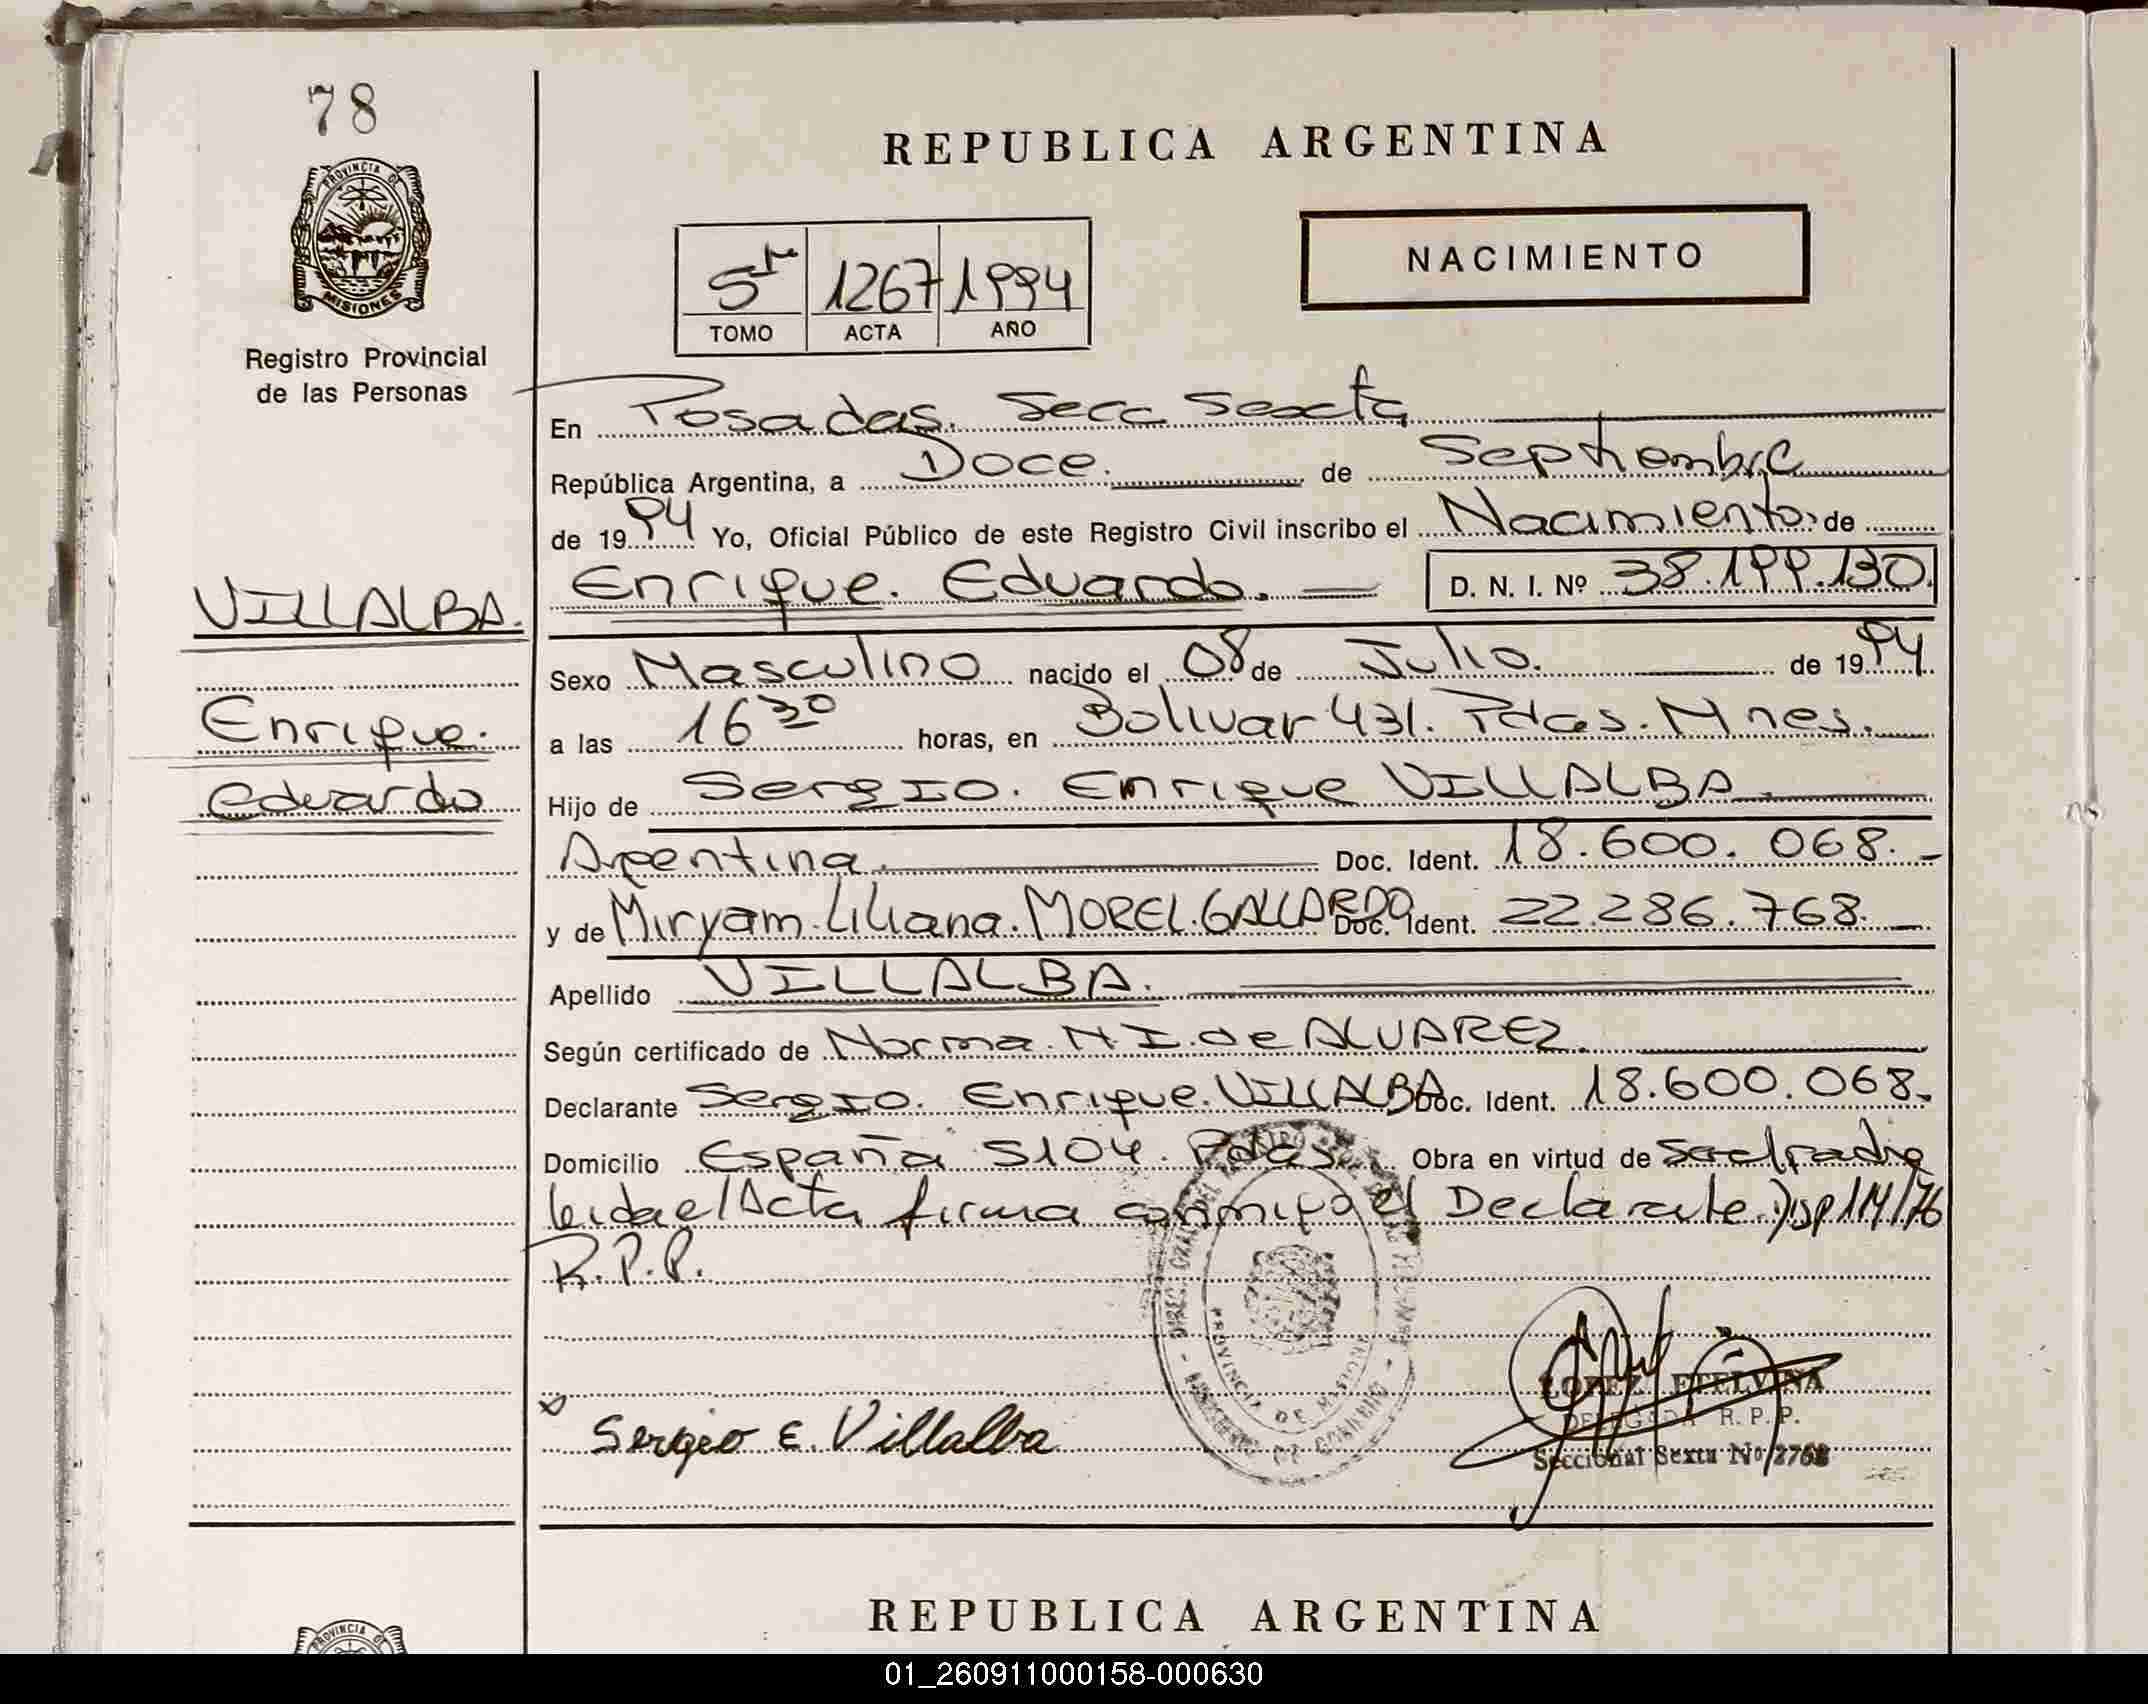 78
PROVINCIA DE
MISIONES
Registro Provincial
de las Personas
VILLALBA.
Enrique.
Eduardo
REPUBLICA ARGENTINA
NACIMIENTO
5to 1267 1994
TOMO ACTA AÑO
En Posadas. Secc Sexta
República Argentina, a Doce. de Septiembre
de 1994 Yo, Oficial Público de este Registro Civil inscribo el Nacimiento. de
Enrique. Eduardo. D. N. I. Nº 38.199.130.
Sexo Masculino nacido el 08 de Julio. de 1994.
a las 16 30 horas, en Bolivar 431. Pdas. Mnes.
Hijo de Sergio. Enrique VILLALBA.
Argentina. Doc. Ident. 18.600.068.-
y de Miryam. Liliana. MOREL. GALLARDO Doc. Ident. 22.286.768.
Apellido VILLALBA.
Según certificado de Norma. N. I. de ALVAREZ.
Declarante Sergio. Enrique. VILLALBA Doc. Ident. 18.600.068.
Domicilio España 5104. Pdas. Obra en virtud de
Leida el Acta firma conmigo el Declarante. Disp 114/76
R.P.P.
PROVINCIA DE MISIONES
Sergio E. Villalba
LOPEZ ETELVINA
DELEGADA R. P. P.
Seccional Sexta Nº 2768
PROVINCIA DE
REPUBLICA ARGENTINA
01_260911000158-000630